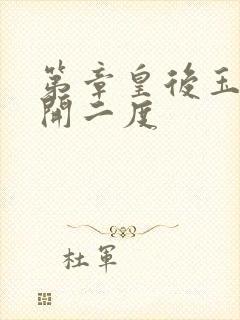 第章皇後玉
開二度
杜軍